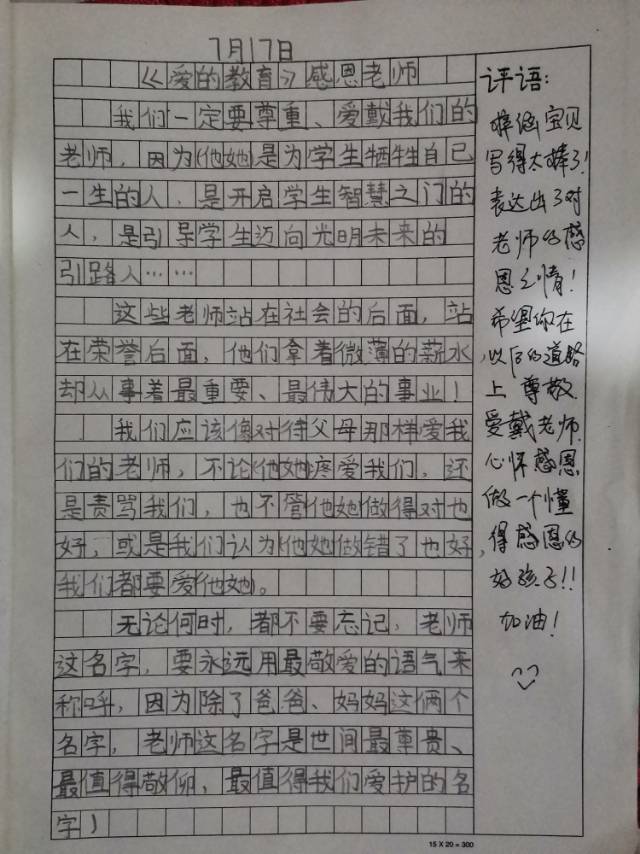 7月17日
《爱的教育》感恩老师
我们一定要尊重、爱戴我们的
老师，因为他她是为学生牺牲自已
一生的人，是开启学生智慧之门的
人，是引导学生迈向光明未来的
引路人……
这些老师站在社会的后面，站
在荣誉后面，他们拿着微薄的薪水
却从事着最重要、最伟大的事业！
我们应该像对待父母那样爱我
们的老师，不论他她疼爱我们，还
是责骂我们，也不管他她做得对也
好，或是我们认为他她做错了也好，
我们都要爱他她。
无论何时，都不要忘记，老师
这名字，要永远用最敬爱的语气来
称呼，因为除了爸爸、妈妈这俩个
名字，老师这名字是世间最尊贵、
最值得敬仰，最值得我们爱护的名
字）
15 X 20 = 300
评语：
涵宝贝
写得太棒了！
表达出了对
老师的感
恩之情！
希望你在
以后的道路
上尊敬
爱戴老师
心怀感恩
做一个懂
得感恩的
好孩子！！
加油！